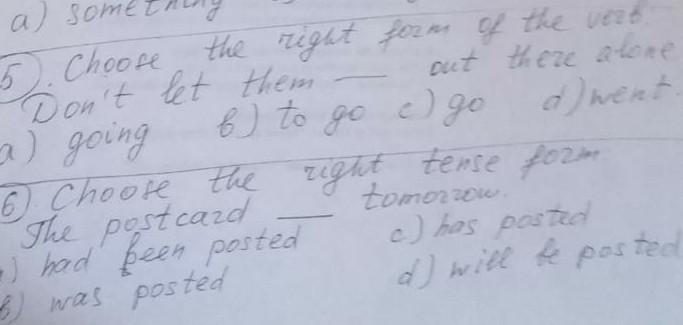 a) something
5). Choose the right form of the verb.
Don't let them — out there alone
a) going b) to go c) go d) went.
6). Choose the right tense form
The postcard — tomorrow.
a) had been posted c) has posted
b) was posted d) will be posted